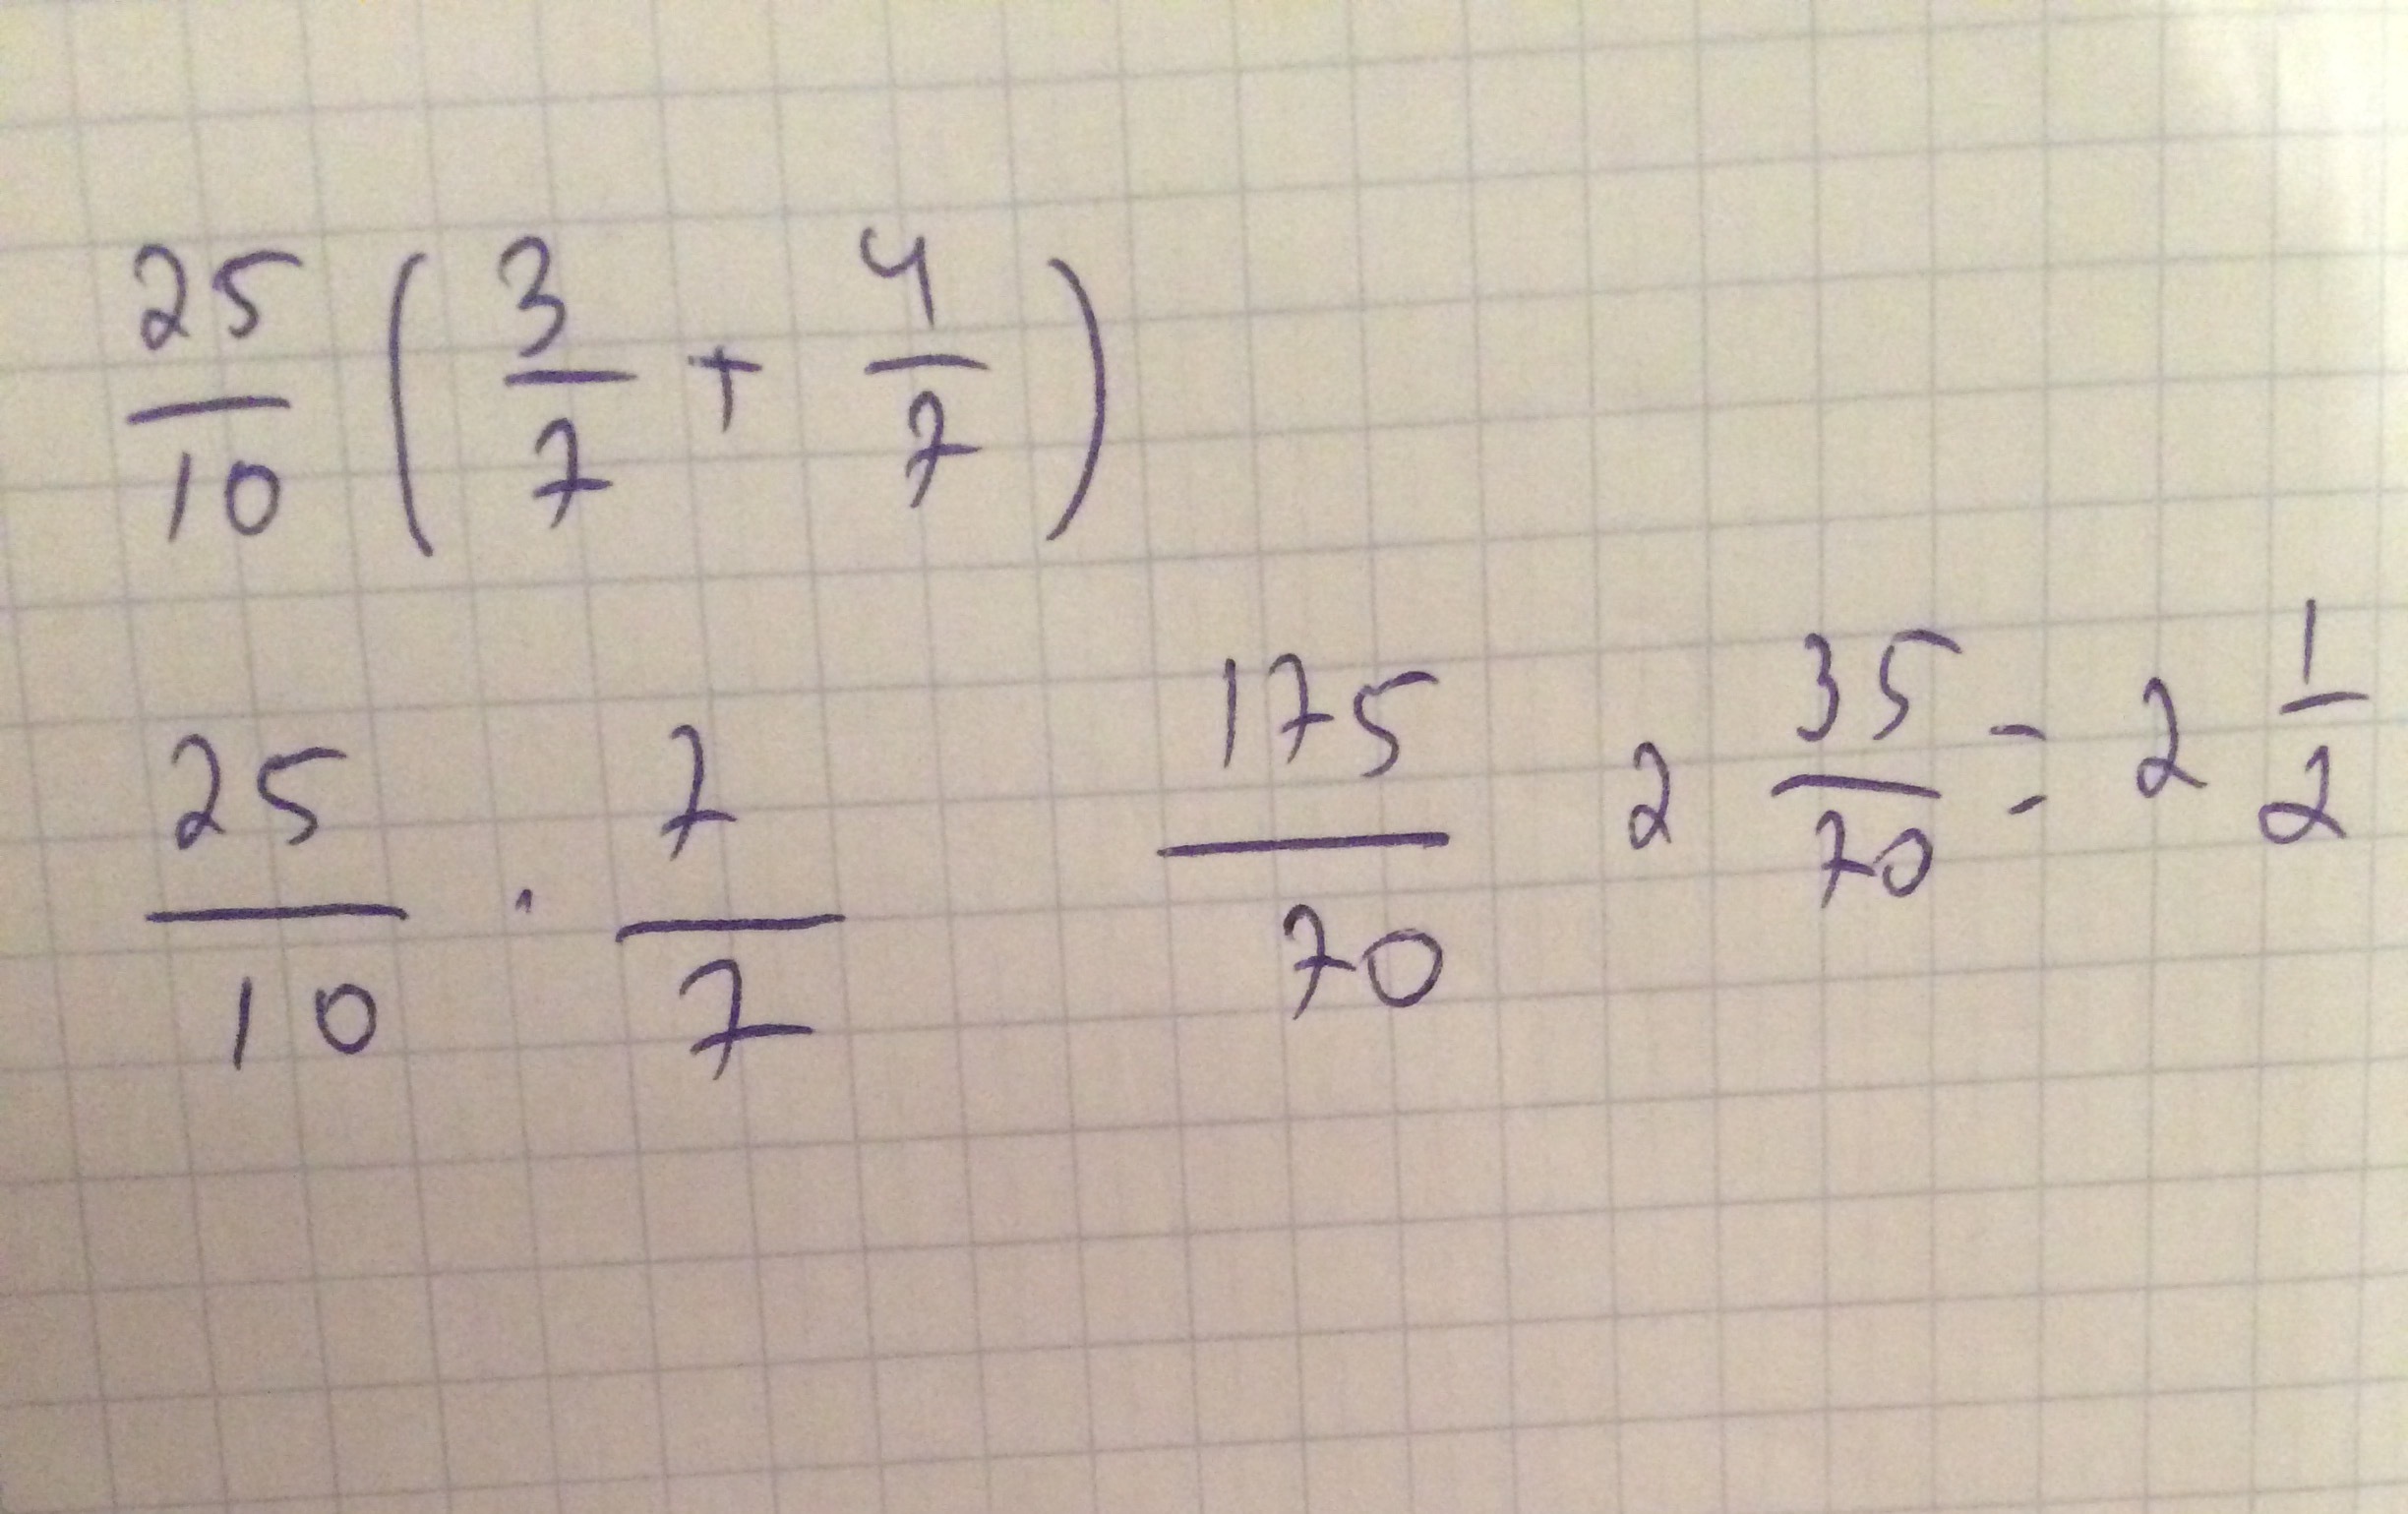 25/10 (3/7 + 4/7)
25/10 · 7/7 175/70 2 35/70 = 2 1/2